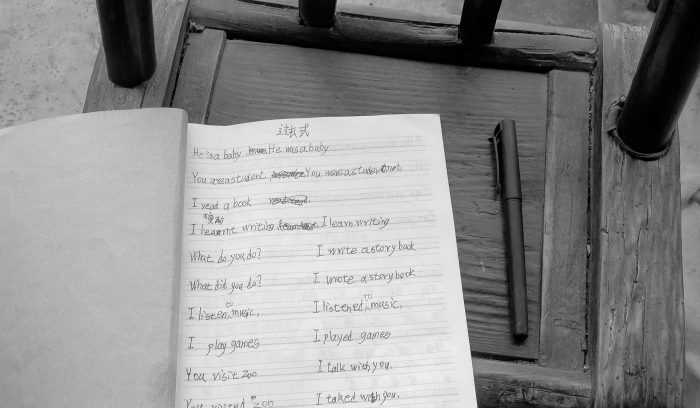 过去式
He is a baby He was a baby
You are a student You were a student
I read a book
I learnt writing I learn writing
What do you do? I write a story book
What did you do? I wrote a story book
I listen to music. I listened to music.
I play games I played games
You visit zoo I talk with you.
You visited zoo I taked with you.